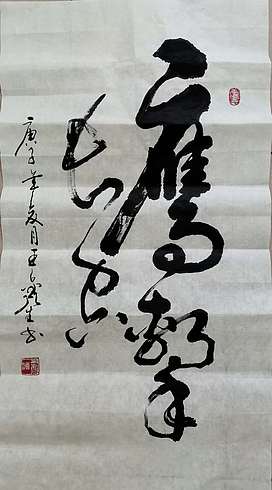 鹰击
长空
庚子年夏月王
书